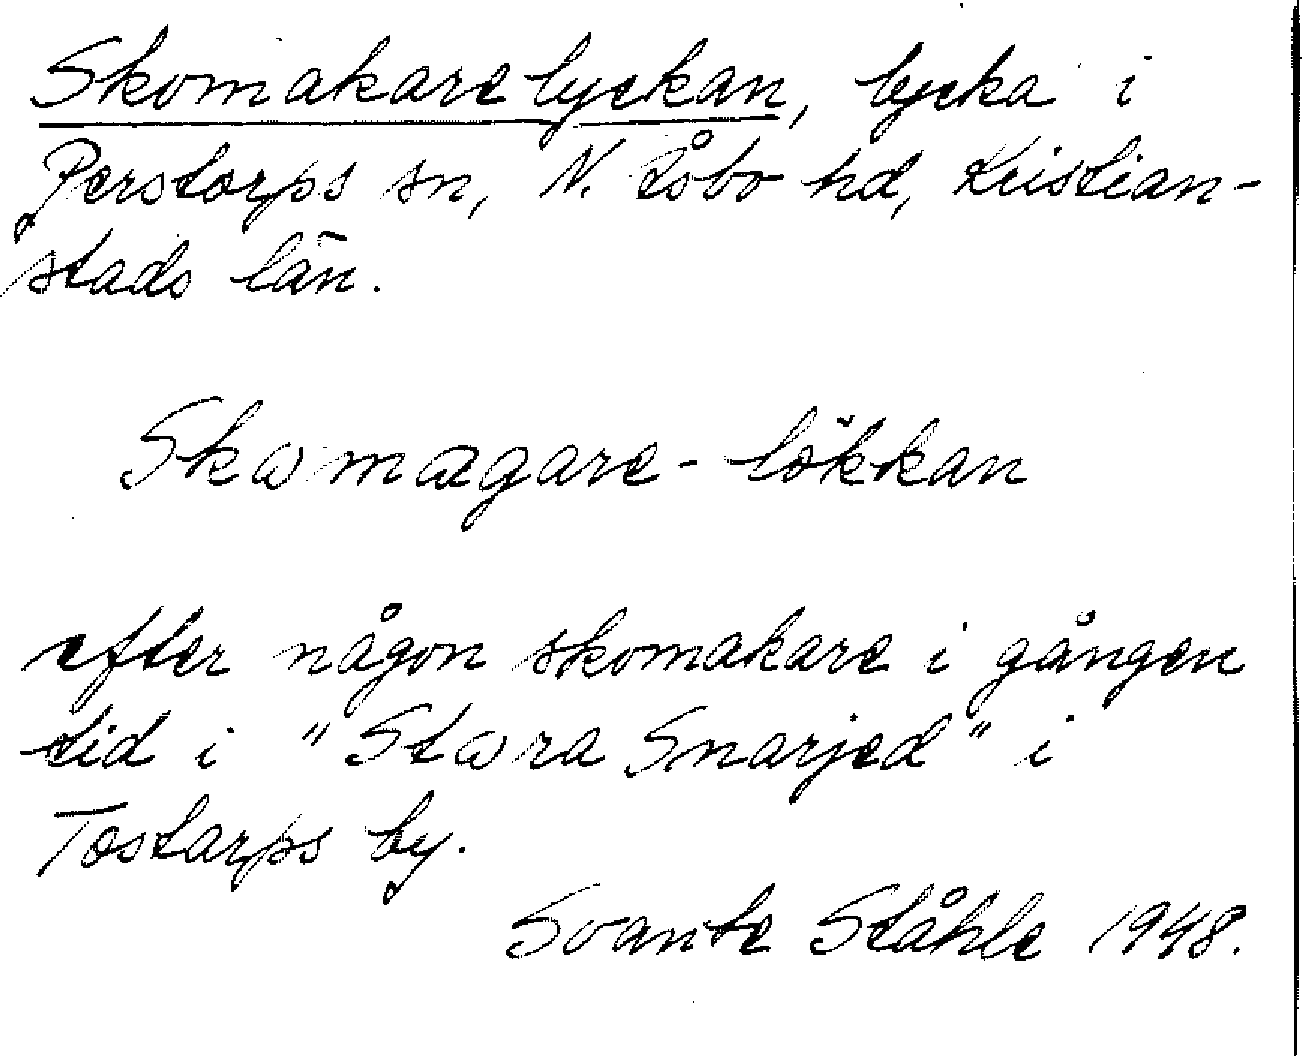 Skomakarelyckan, lycka i
Perstorps sn, N. Åsbo hd, Kristian-
stads län.
Skωmagare-lökkan
efter någon skomakare i gången
tid i "Stωra Snarjed" i
Tostarps by.
Svante Ståhle 1948.